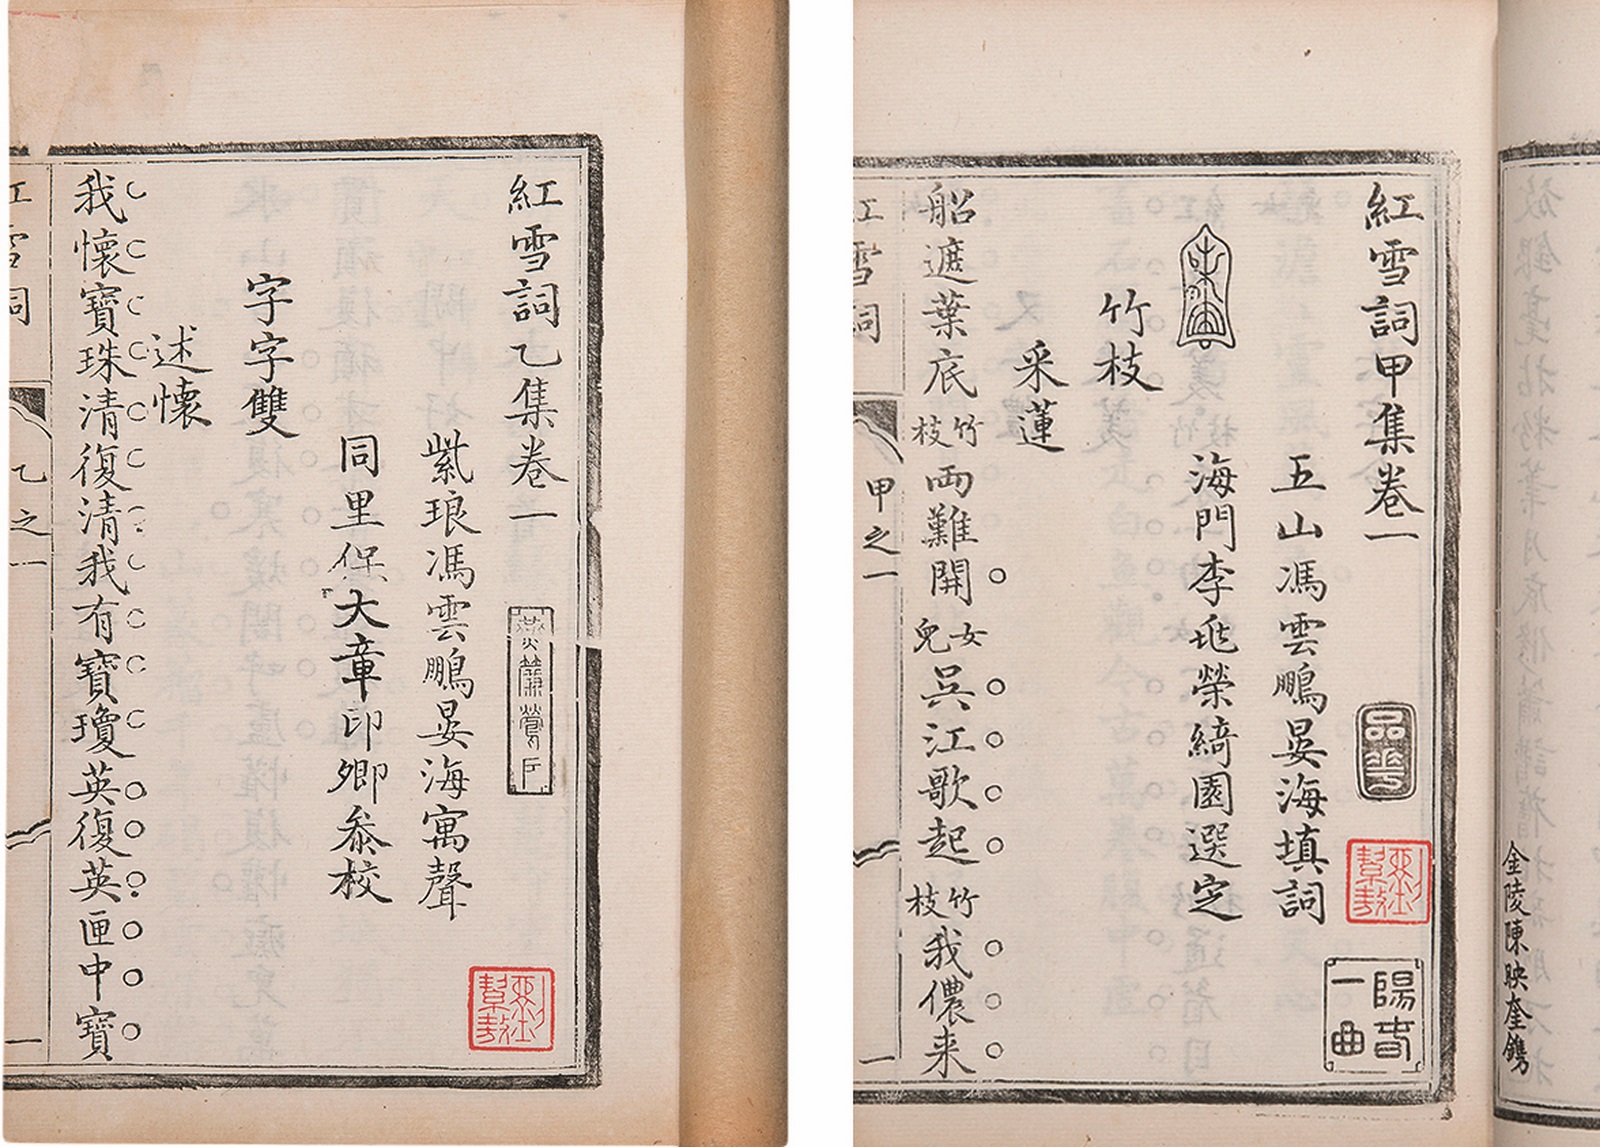 紅雪詞乙集卷一
紫琅馮雲鵬晏海寓聲
同里保大章印卿叅校
字字雙
述懷
我懷寶珠清復清我有寶瓊英復英匣中寶
紅雪詞
乙之一
一
金陵陳映奎鐫
紅雪詞甲集卷一
品花
陽春一曲
五山馮雲鵬晏海填詞
海門李 榮綺園選定
竹枝
采蓮
船遮葉底竹枝兩難開女兒吳江歌起竹枝我儂来
紅雪詞
甲之一
一